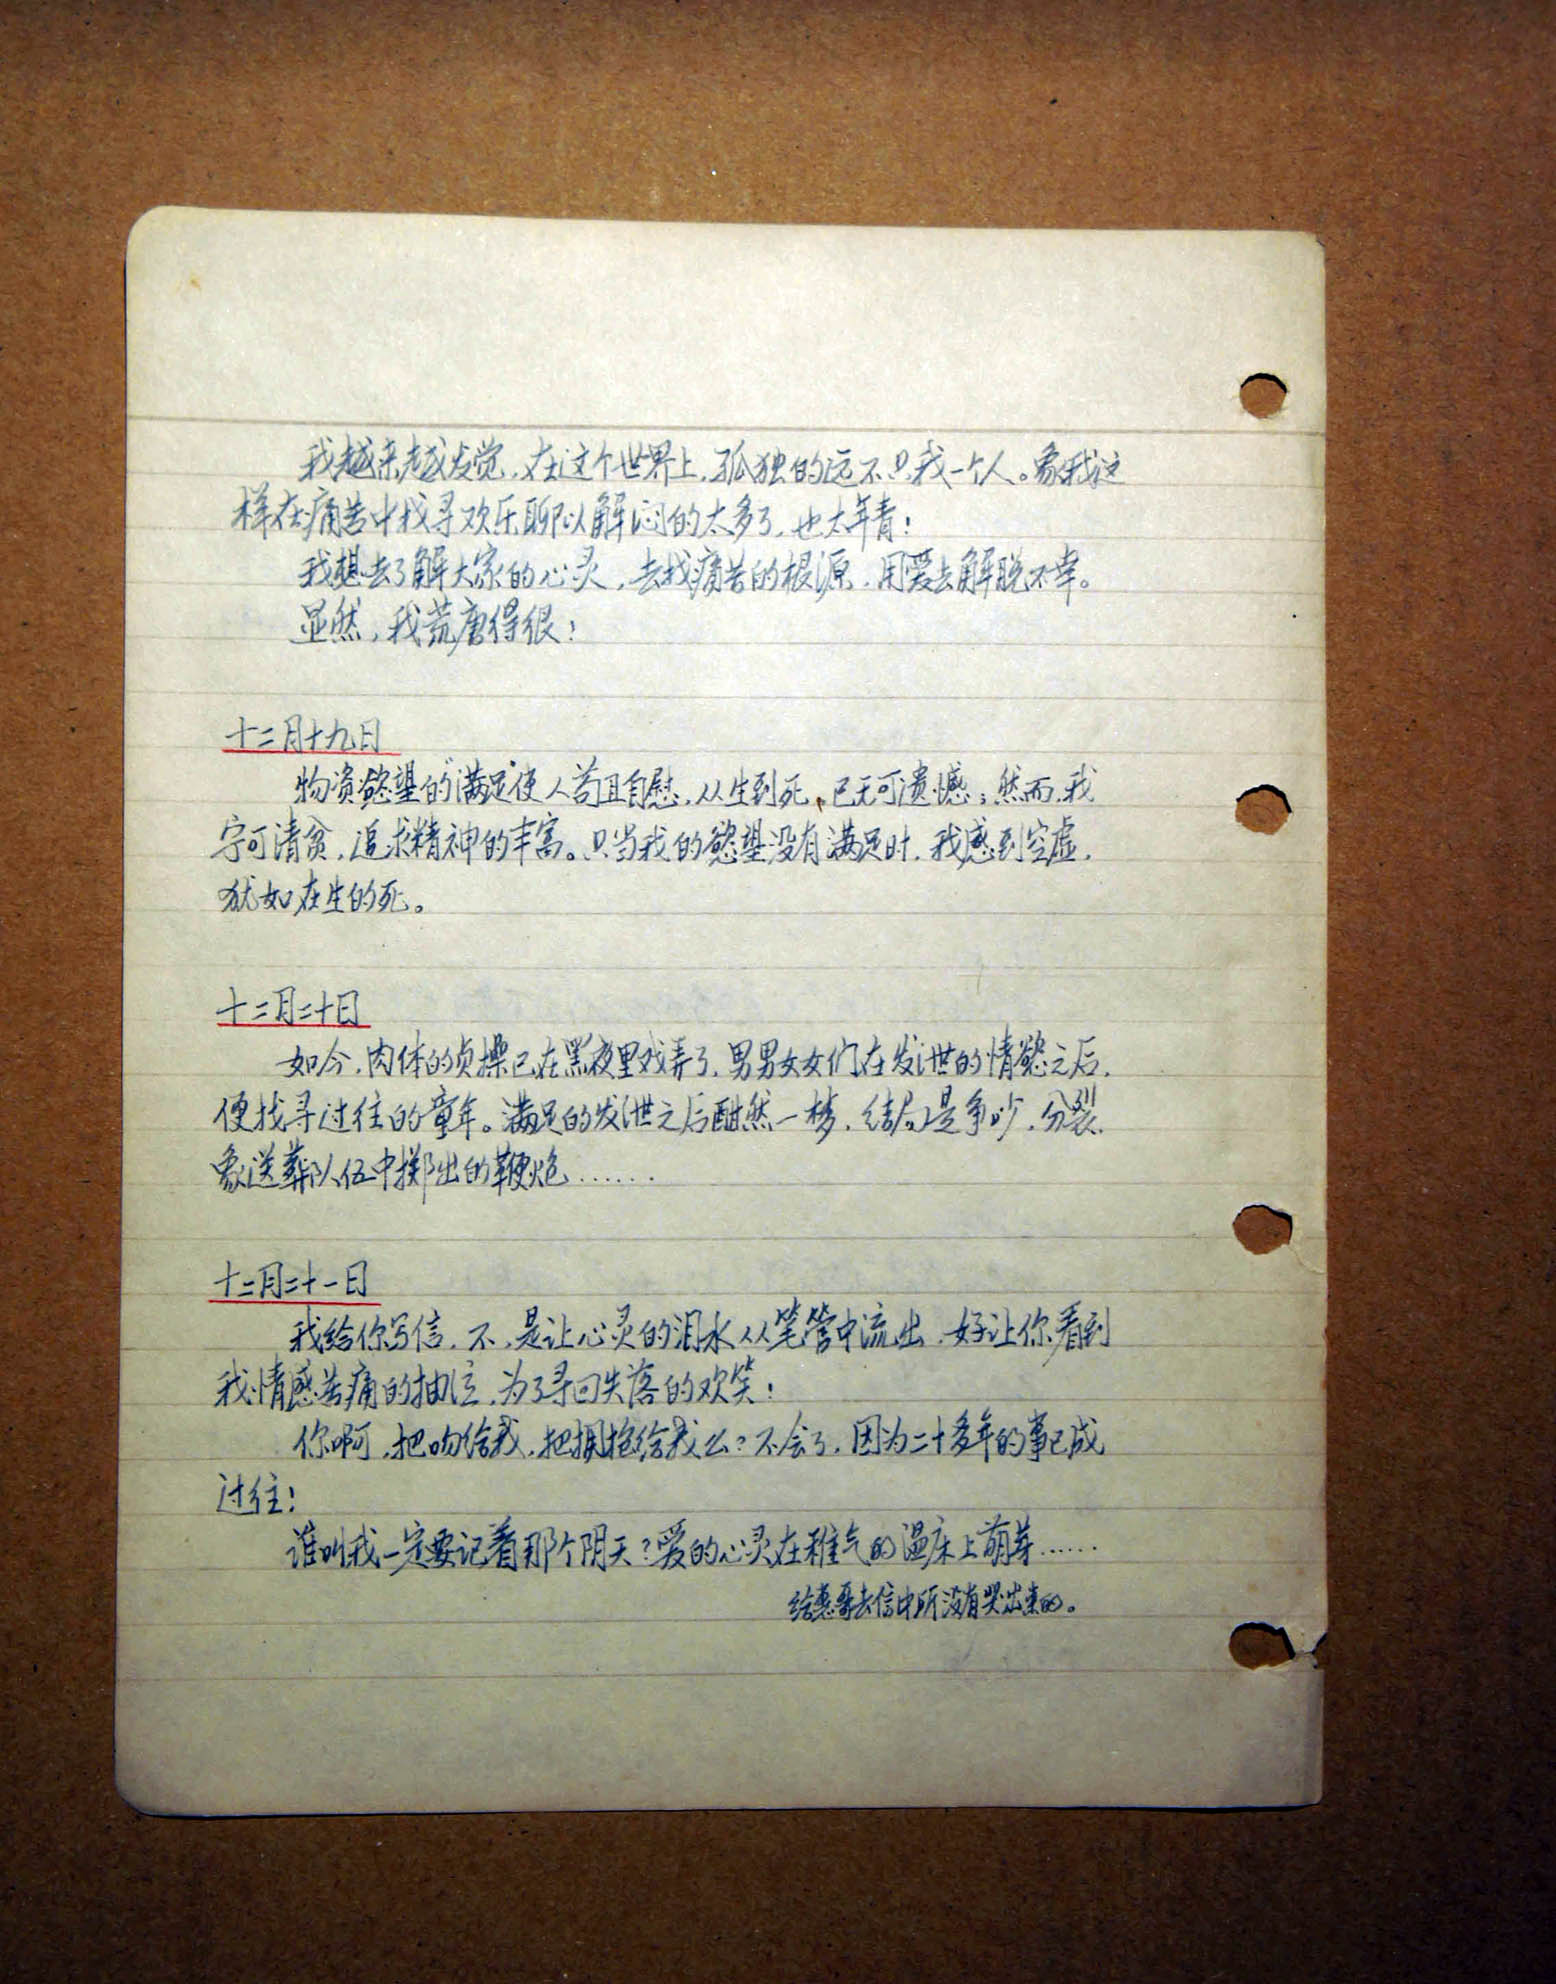 我越来越发觉，在这个世界上，孤独的远不只我一个人。象我这
样在痛苦中找寻欢乐聊以解闷的太多了，也太年青！
我想去了解大家的心灵，去找痛苦的根源，用爱去解脱不幸。
显然，我荒唐得很！
十二月十九日
物资慾望的“满足”使人苟且自慰，从生到死，已无可遗憾；然而，我
宁可清贫，追求精神的丰富。只当我的慾望没有满足时，我感到空虚，
犹如在生的死。
十二月二十日
如今，肉体的贞操已在黑夜里戏弄了，男男女女们在发泄的情慾之后，
便找寻过往的童年。满足的发泄之后酣然一梦，结局是争吵，分裂，
象送葬队伍中掷出的鞭炮……
十二月二十一日
我给你写信，不，是让心灵的泪水从笔管中流出，好让你看到
我情感苦痛的抽泣，为了寻回失落的欢笑！
你啊，把吻给我，把拥抱给我么？不会了，因为二十多年的事已成
过往！
谁叫我一定要记着那个阴天？爱的心灵在稚气的温床上萌芽……
给惠哥去信中所没有哭出来的。